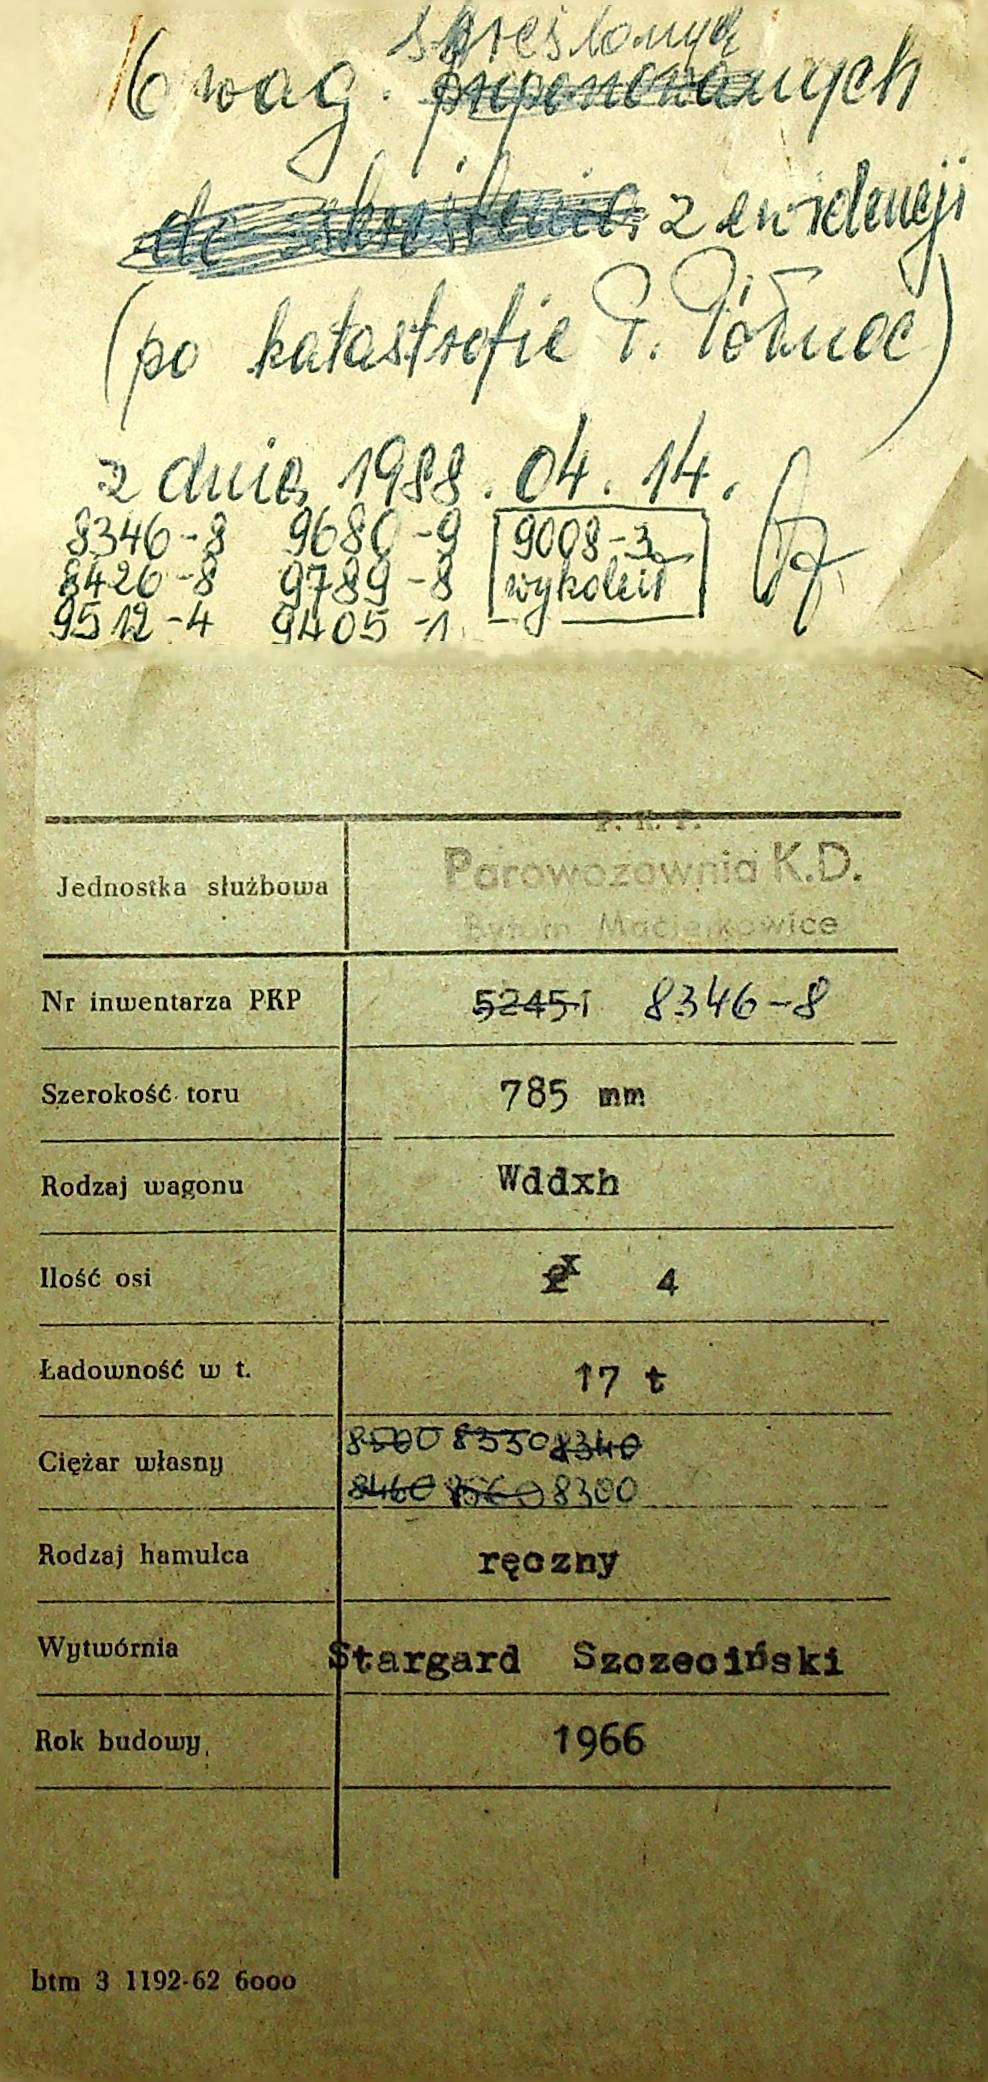 skreślonych
6 wag. proponowanych
do skreślenia z ewidencji
(po katastrofie P. Północ)
z dnia 1988.04.14.
8346-8 9680-9 9008-3
8426-8 9789-8 wykoleił
9512-4 9405-1
P. K. P.
Jednostka służbowa Parowozownia K.D.
Bytom Maciejkowice
Nr inwentarza PKP 52451 8346-8
Szerokość toru 785 mm
Rodzaj wagonu Wddxh
Ilość osi 2x 4
Ładowność w t. 17 t
8500 8550 8340
Ciężar własny
8460 8560 8300
Rodzaj hamulca ręczny
Wytwórnia Stargard Szczeciński
Rok budowy 1966
btm 3 1192-62 6000